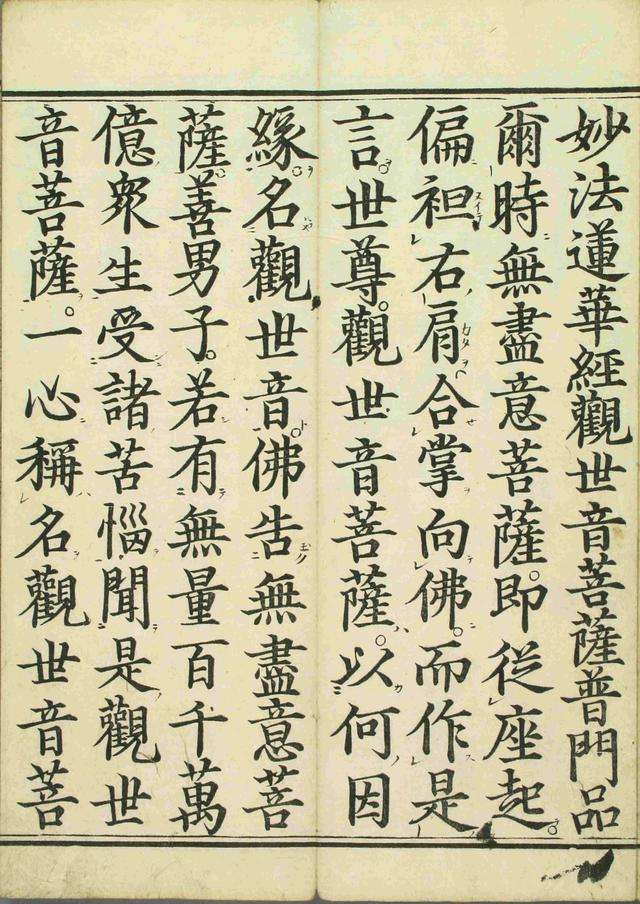 妙法蓮華經觀世音菩薩普門品
爾時無盡意菩薩。即從座起。
偏袒右肩合掌向佛。而作是
言。世尊。觀世音菩薩。以何因
緣。名觀世音。佛告無盡意菩
薩。善男子。若有無量百千萬
億衆生受諸苦惱聞是觀世
音菩薩。一心稱名觀世音菩